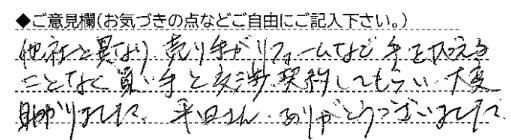 ◆ご意見欄(お気づきの点などご自由にご記入下さい。)
他社と異なり 売り手がリフォームなど手を加える
ことなく買い手と交渉、契約してもらい 大変
助かりました。平田さん、ありがとうございました